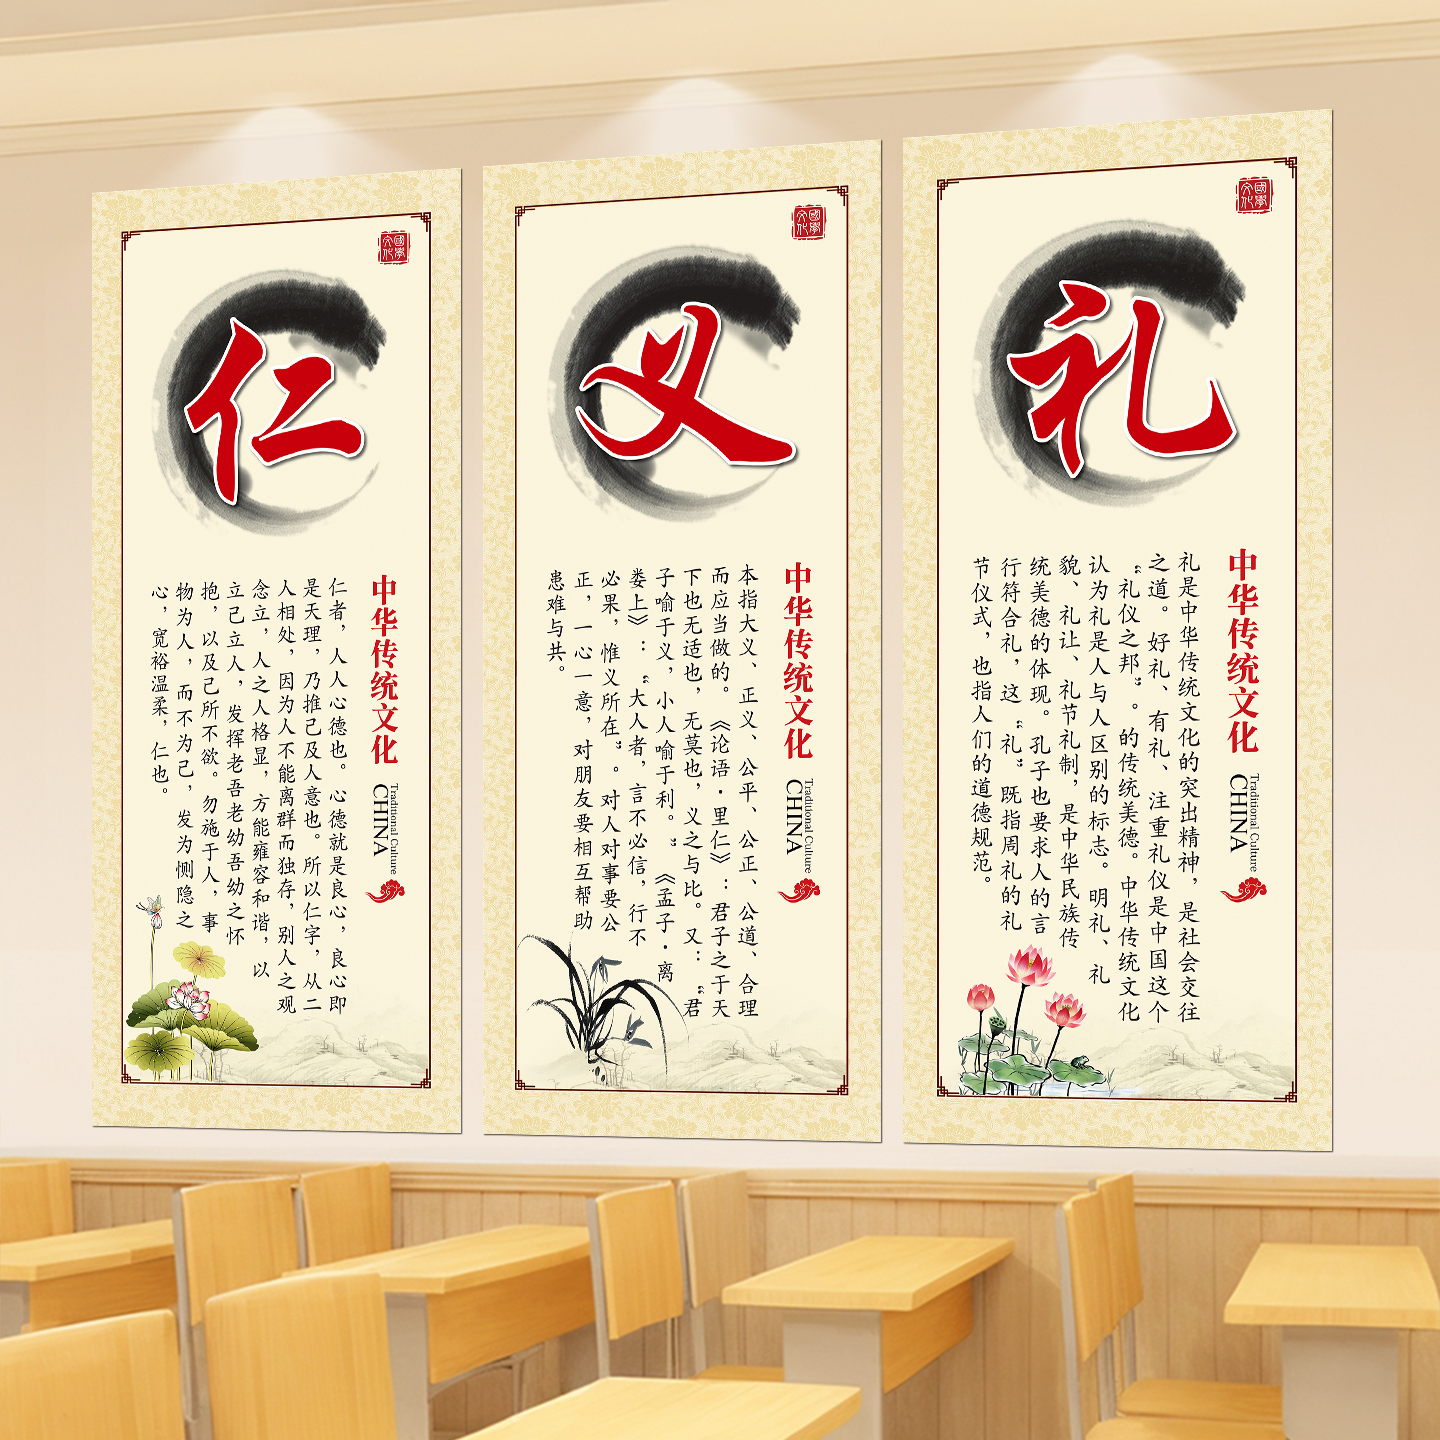 國學文化
仁
中华传统文化
Traditional Culture
CHINA
仁者，人人心德也。心德就是良心，良心即
是天理，乃推己及人意也。所以仁字，从二
人相处，因为人不能离群而独存，别人之观
念立，人之人格显，方能雍容和谐，以
立己立人，发挥老吾老幼吾幼之怀
抱，以及己所不欲。勿施于人，事
物为人，而不为己，发为恻隐之
心，宽裕温柔，仁也。
國學文化
义
中华传统文化
Traditional Culture
CHINA
本指大义、正义、公平、公正、公道、合理
而应当做的。《论语·里仁》：君子之于天
下也无适也，无莫也，义之与比。又：“君
子喻于义，小人喻于利。”《孟子·离
娄上》：“大人者，言不必信，行不
必果，惟义所在”。对人对事要公
正，一心一意，对朋友要相互帮助
患难与共。
國學文化
礼
中华传统文化
Traditional Culture
CHINA
礼是中华传统文化的突出精神，是社会交往
之道。好礼、有礼、注重礼仪是中国这个
“礼仪之邦”。的传统美德。中华传统文化
认为礼是人与人区别的标志。明礼、礼
貌、礼让、礼节礼制，是中华民族传
统美德的体现。孔子也要求人的言
行符合礼，这“礼”既指周礼的礼
节仪式，也指人们的道德规范。